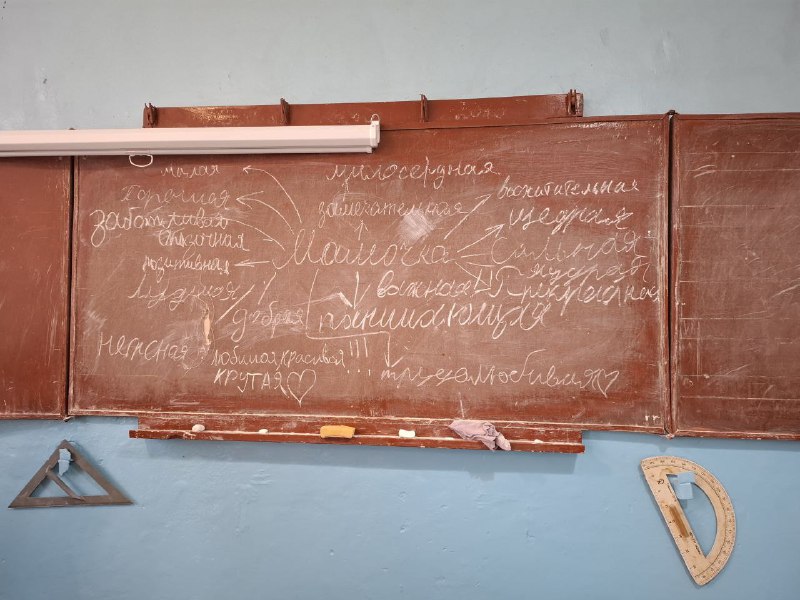 милая милосердная
хорошая замечательная восхитительная
заботливая щедрая
сказочная Мамочка Сильная
позитивная мудрая
важная Прекрасная
добрая понимающая
Любимая красивая!!!!
КРУТАЯ♡ трудолюбивая♡